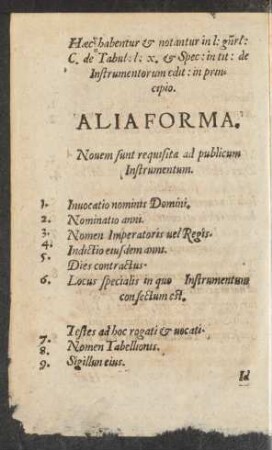 Hæc habentur & notantur in l: gñrl:
C. de Tabul: l: x. & Spec: in tit: de
Instrumentorum edit: in prin-
cipio.
ALIA FORMA.
Nouem sunt requisita ad publicum
Instrumentum.
1. Inuocatio nominis Domini.
2. Nominatio anni.
3. Nomen Imperatoris uel Regis.
4. Indictio eiusdem anni.
5. Dies contractus.
6. Locus specialis in quo Instrumentum
confectum est.
7. Testes ad hoc rogati & uocati.
8. Nomen Tabellionis.
9. Sigillum eius.
Id